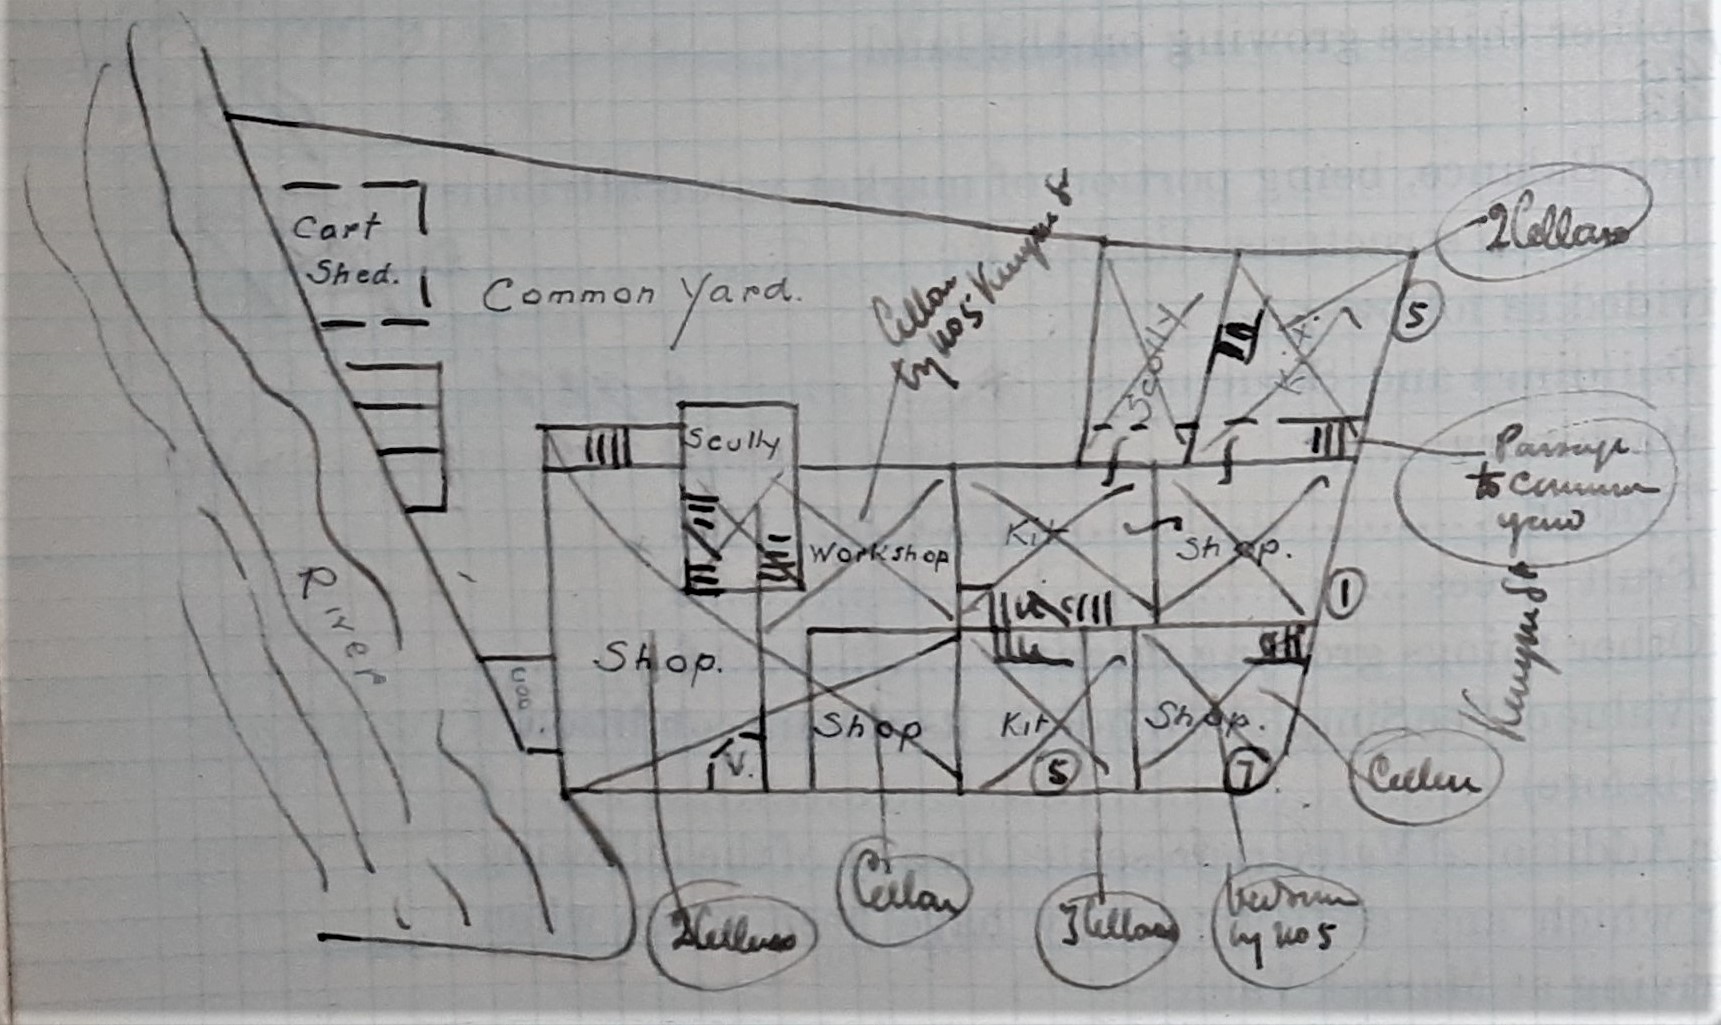 2 Cellars
Cart
Shed.
Common Yard.
Cellar
by No 5 Kenyns St
5
Scully
Kit
Scully
Passage
to common
yard
Workshop
Kit
Shop.
1
Kenyns St
River
Shop.
V.
Shop
Kit
5
Shop.
7
Cellar
2 Cellars
Cellar
3 Cellars
bedroom
by No 5